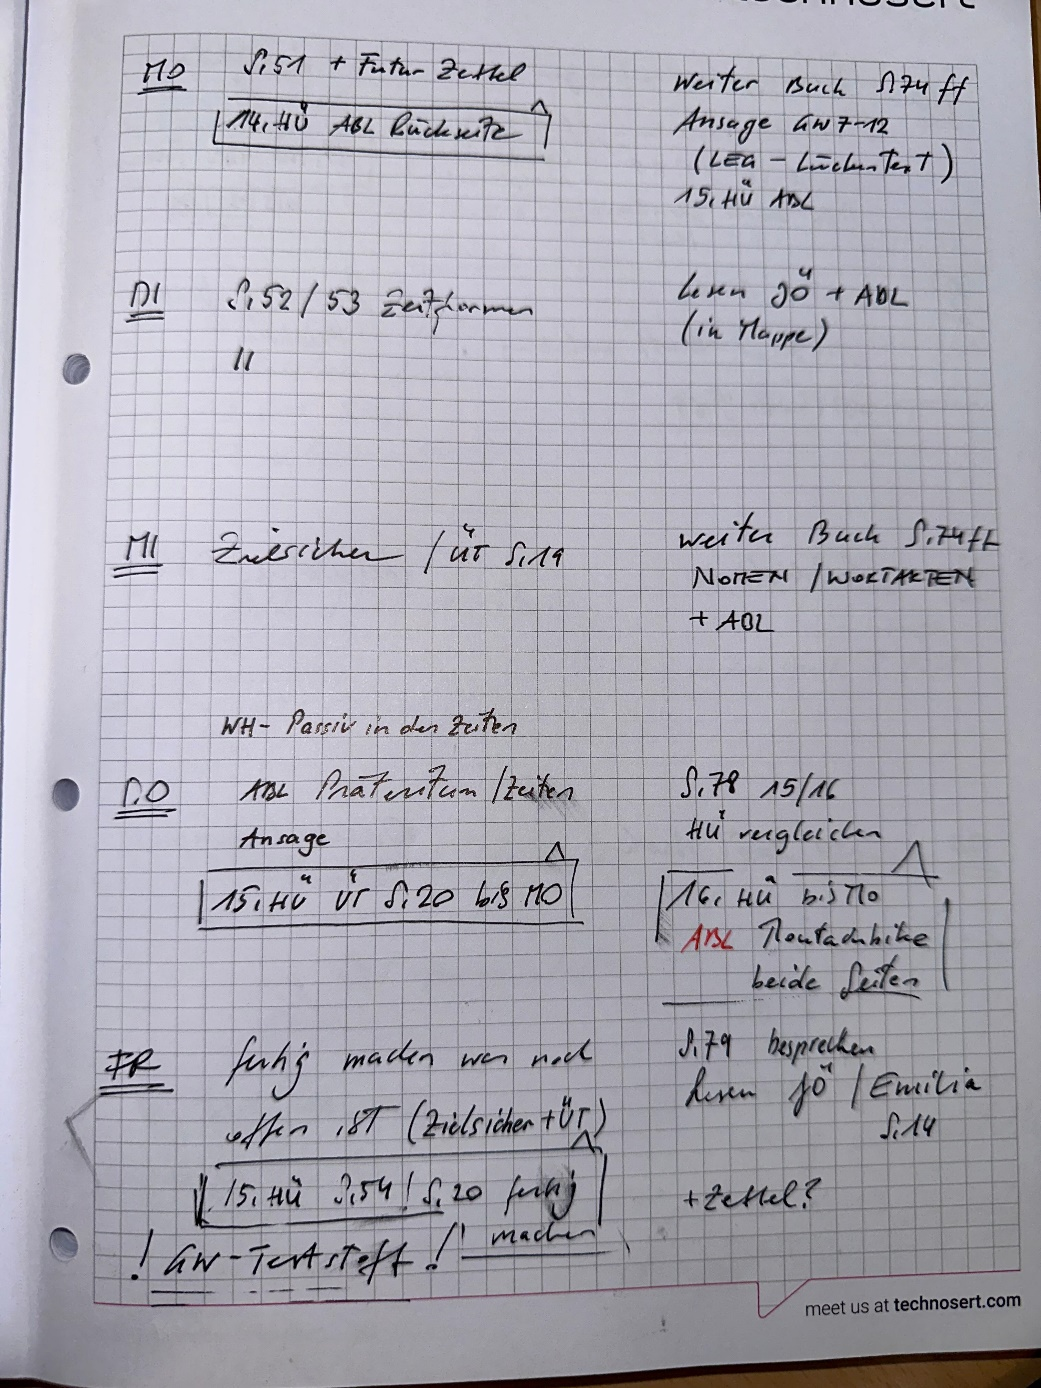 technosert
MO
S.51 + Futur-Zettel
14. HÜ ABL Rückseite
Weiter Buch S.74ff
Ansage GW 7-12
(LEG - Lückentext)
15. HÜ ABL
DI
S.52/53 Zeitformen
"
Lesen JÖ + ABL
(in Mappe)
MI
Zielsicher / ÜT S.19
weiter Buch S.74ff
NOMEN / WORTARTEN
+ ABL
WH- Passiv in den Zeiten
DO
ABL Präteritum / Zeiten
Ansage
15. HÜ ÜT S.20 bis MO
S.78 15/16
HÜ vergleichen
16. HÜ bis MO
ABL Mountainbike
beide Seiten
FR
fertig machen was noch
offen ist (Zielsicher + ÜT)
15. HÜ S.54! S.20 fertig
machen
! GW-Teststoff!
S.79 besprechen
Lesen JÖ / Emilia
S.14
+ Zettel?
meet us at technosert.com